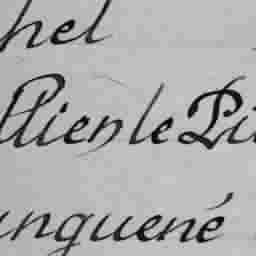 hel
llien le Di
unguené